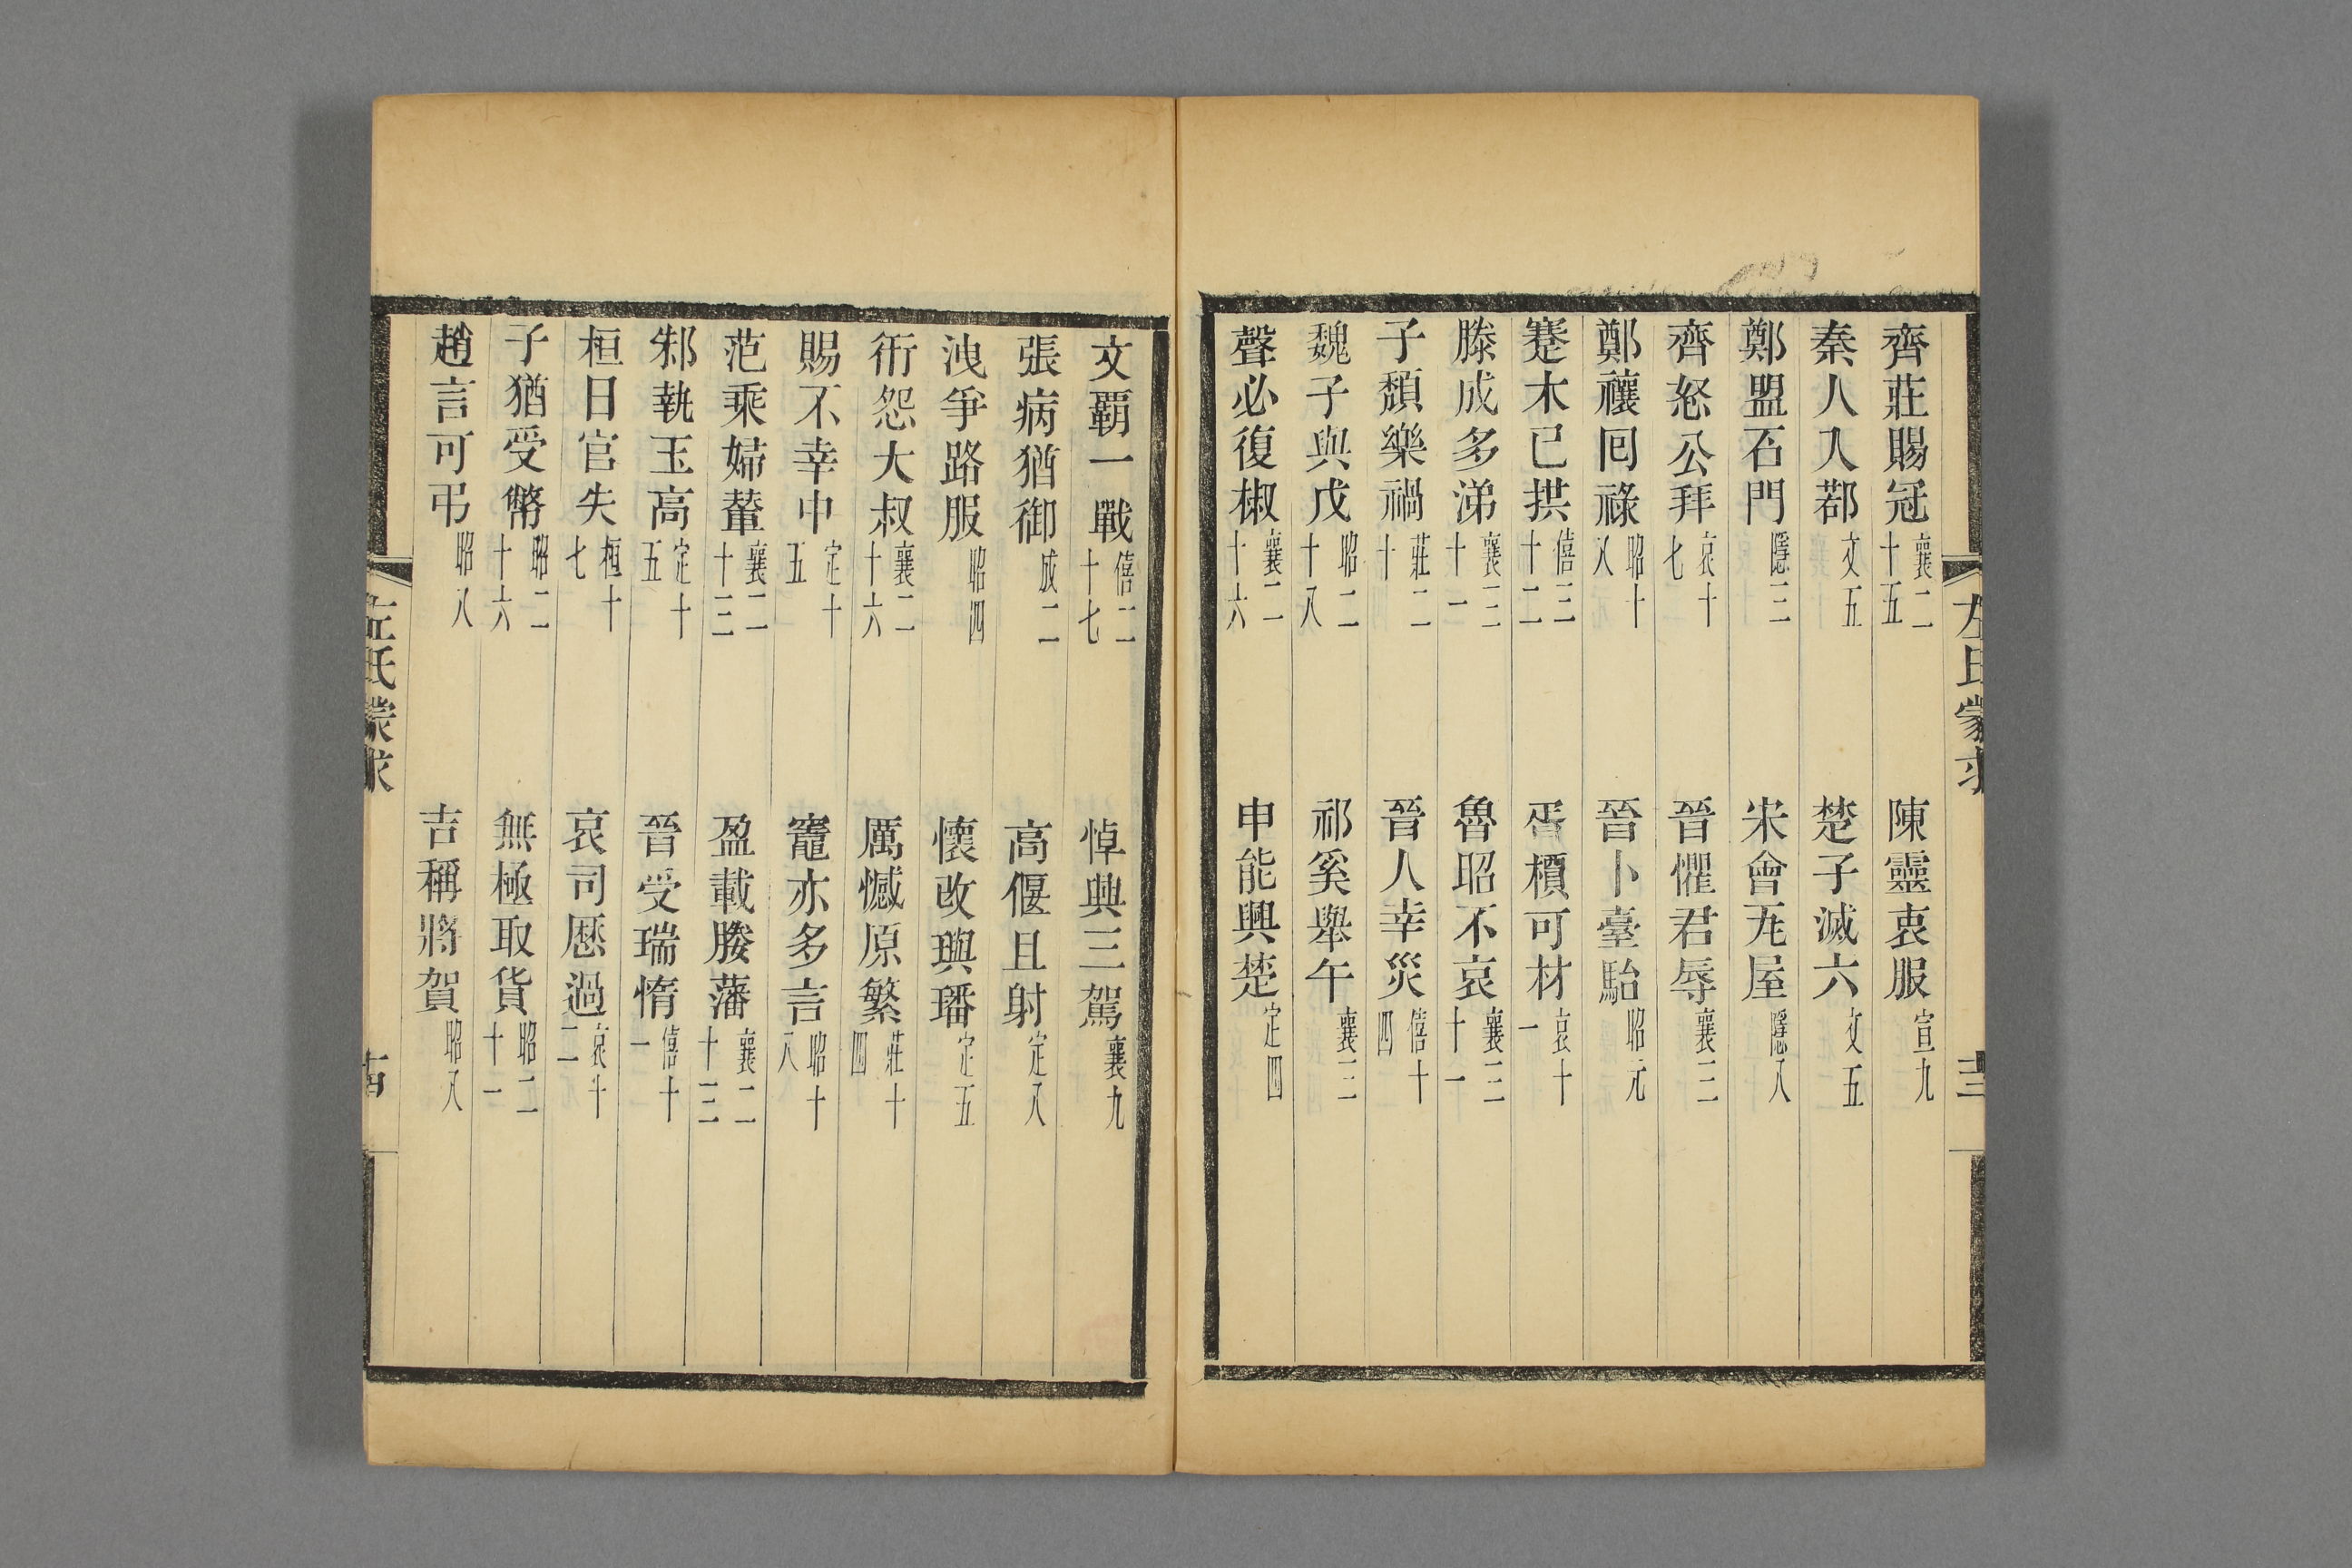 左氏蒙求
十三
齊莊賜冠襄二十五 陳靈衷服宣九
秦人入鄀文五 楚子滅六文五
鄭盟石門隱三 宋會瓦屋隱八
齊怒公拜哀十七 晉懼君辱襄三
鄭禳回祿昭十八 晉卜臺駘昭元
蹇木已拱僖三十二 胥檟可材哀十一
滕成多涕襄三十一 魯昭不哀襄三十一
子頹樂禍莊二十 晉人幸災僖十四
魏子與戊昭二十八 祁奚舉午襄三
聲必復椒襄二十六 申能興楚定四
文霸一戰僖二十七 悼興三駕襄九
張病猶御成二 高偃且射定八
洩爭路服昭四 懷改璵璠定五
衎怨大叔襄二十六 厲憾原繁莊十四
賜不幸中定十五 竈亦多言昭十八
范乘婦輦襄二十三 盈載媵藩襄二十三
邾執玉高定十五 晉受瑞惰僖十一
桓日官失桓十七 哀司厯過哀十二
子猶受幣昭二十六 無極取貨昭二十一
趙言可弔昭八 吉稱將賀昭八
左氏蒙求